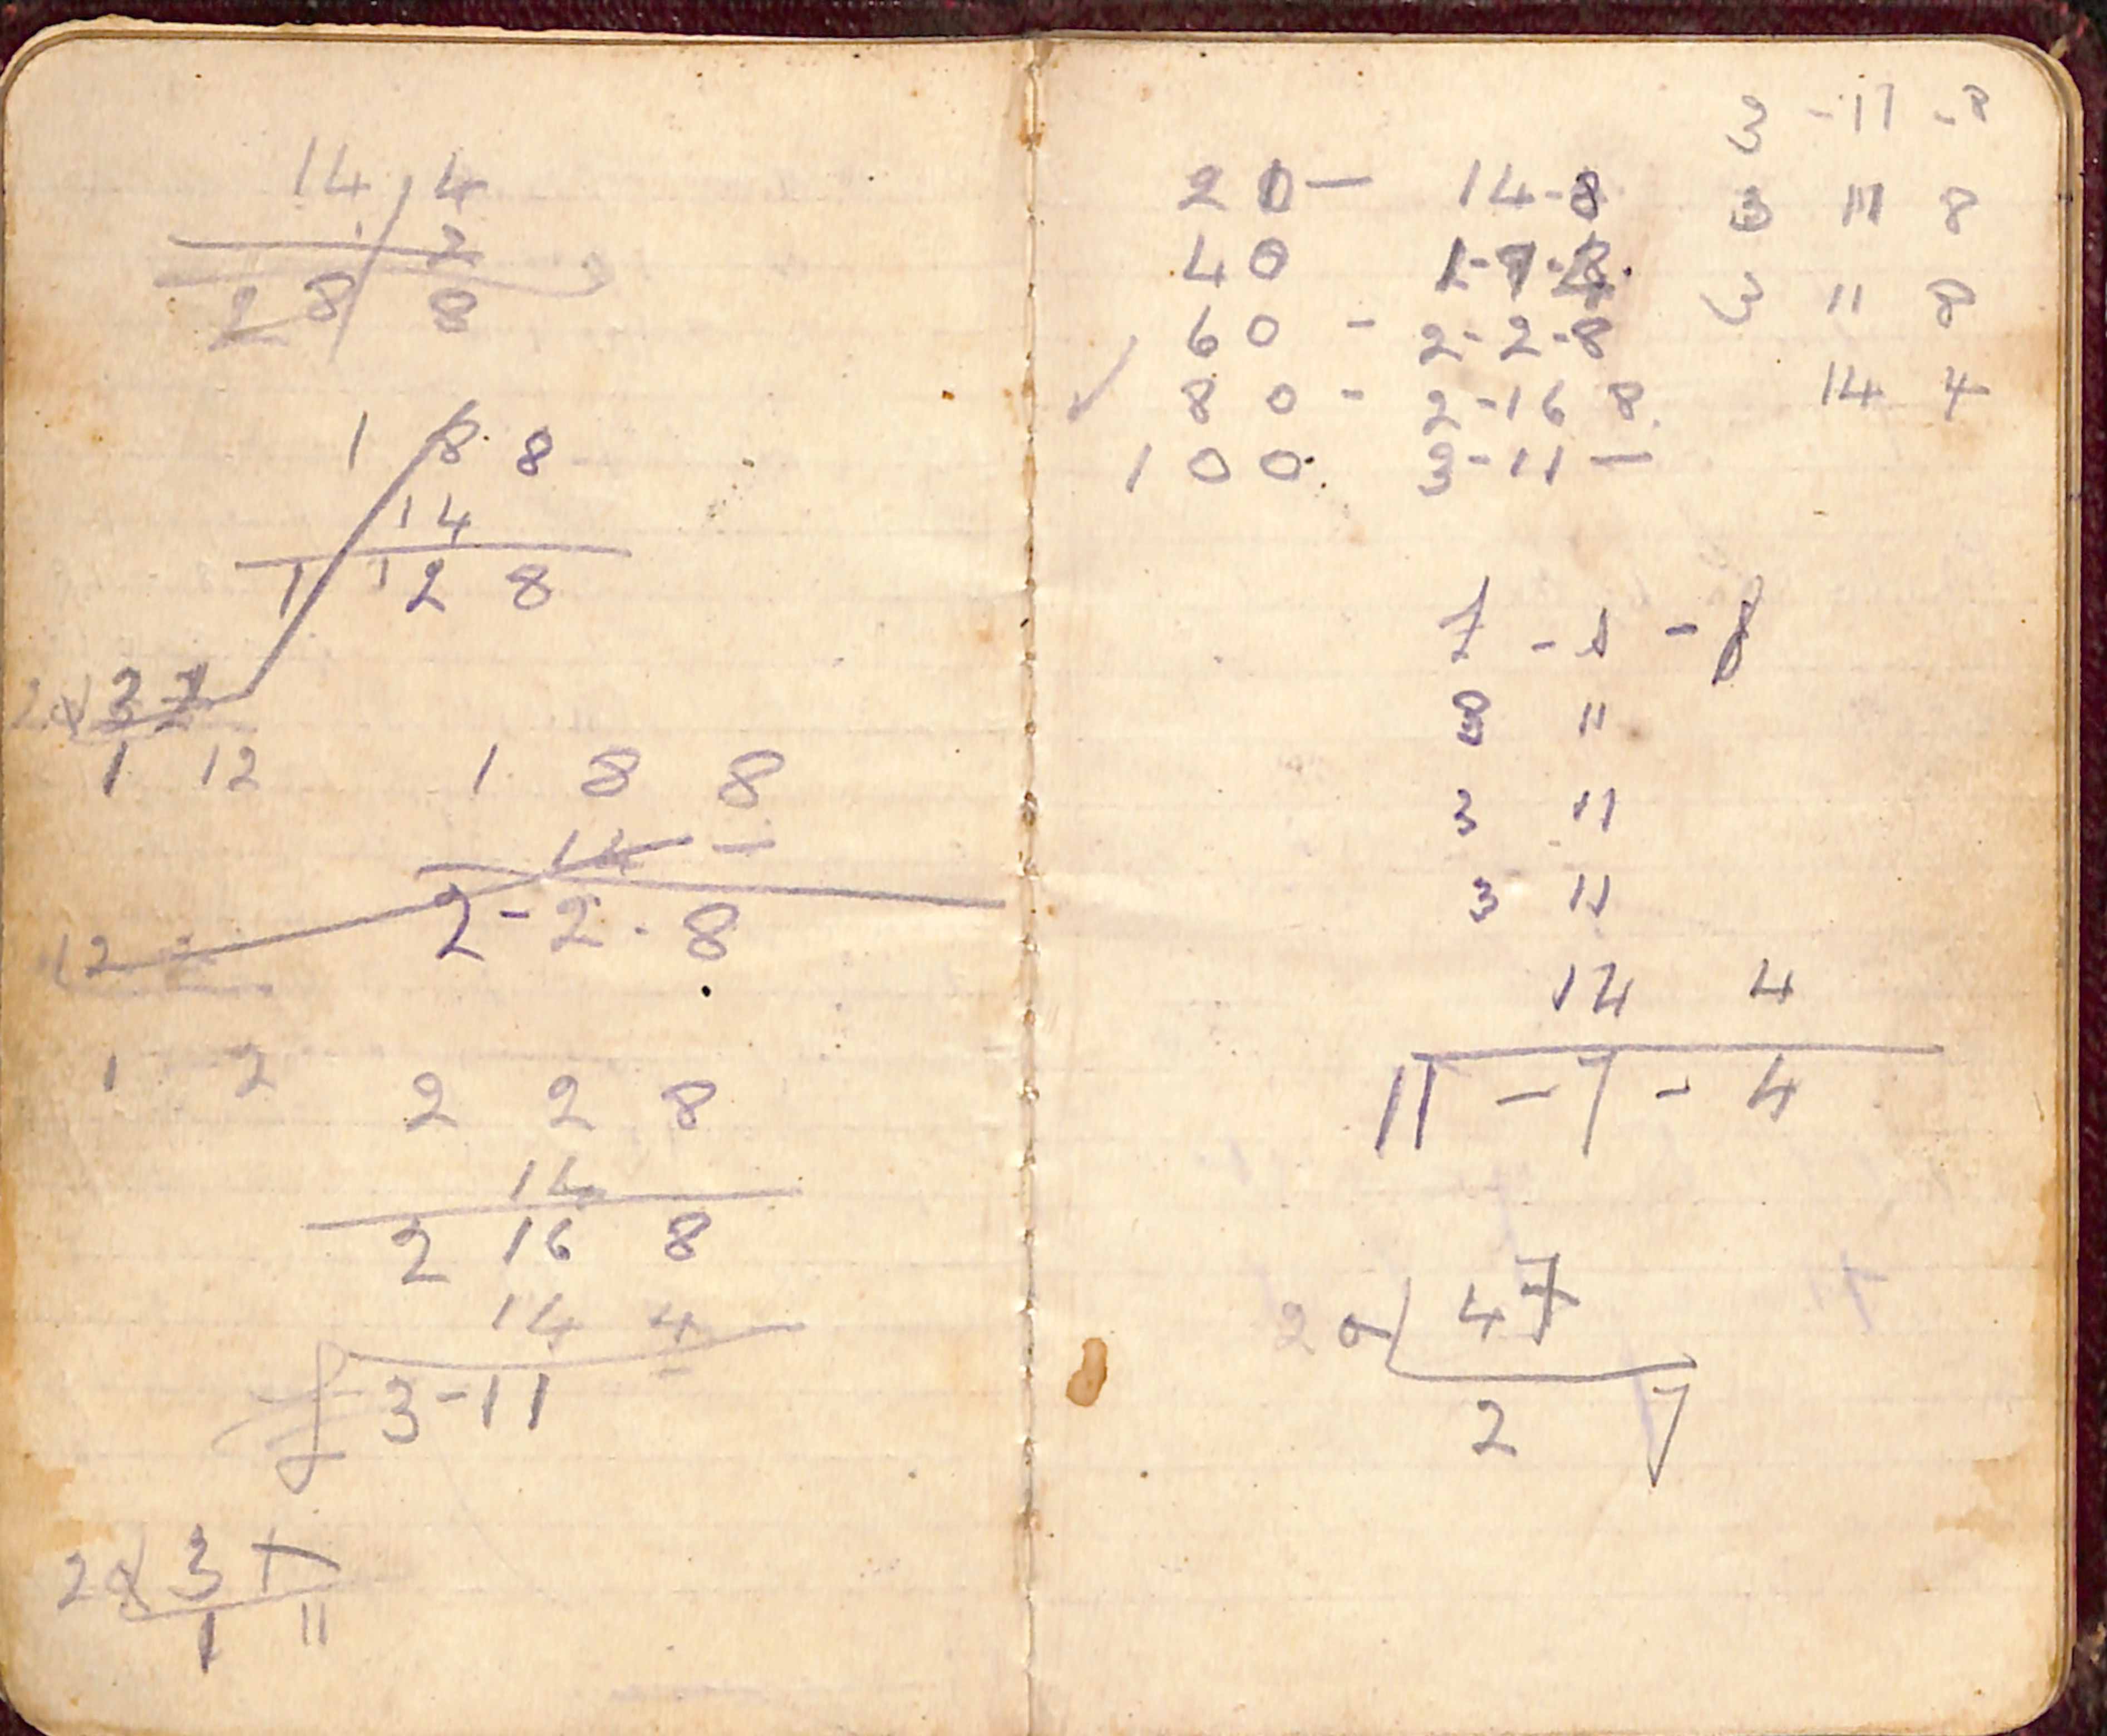 14 4
2
28 8
1 8 8
14
1 12 8
20 37
1 12
1 8 8
14 —
2 - 2 . 8
12
1 2
2 2 8
14
2 16 8
14 4
3 - 11
20 31
1 11
20 — 14-8
40
60 - 2-2-8
80 - 2-16 8
100 3-11 —
3 - 11 - 8
3 11 8
3 11 8
14 4
3 "
3 11
3 11
14 4
11 - 7 - 4
20 47
2 7